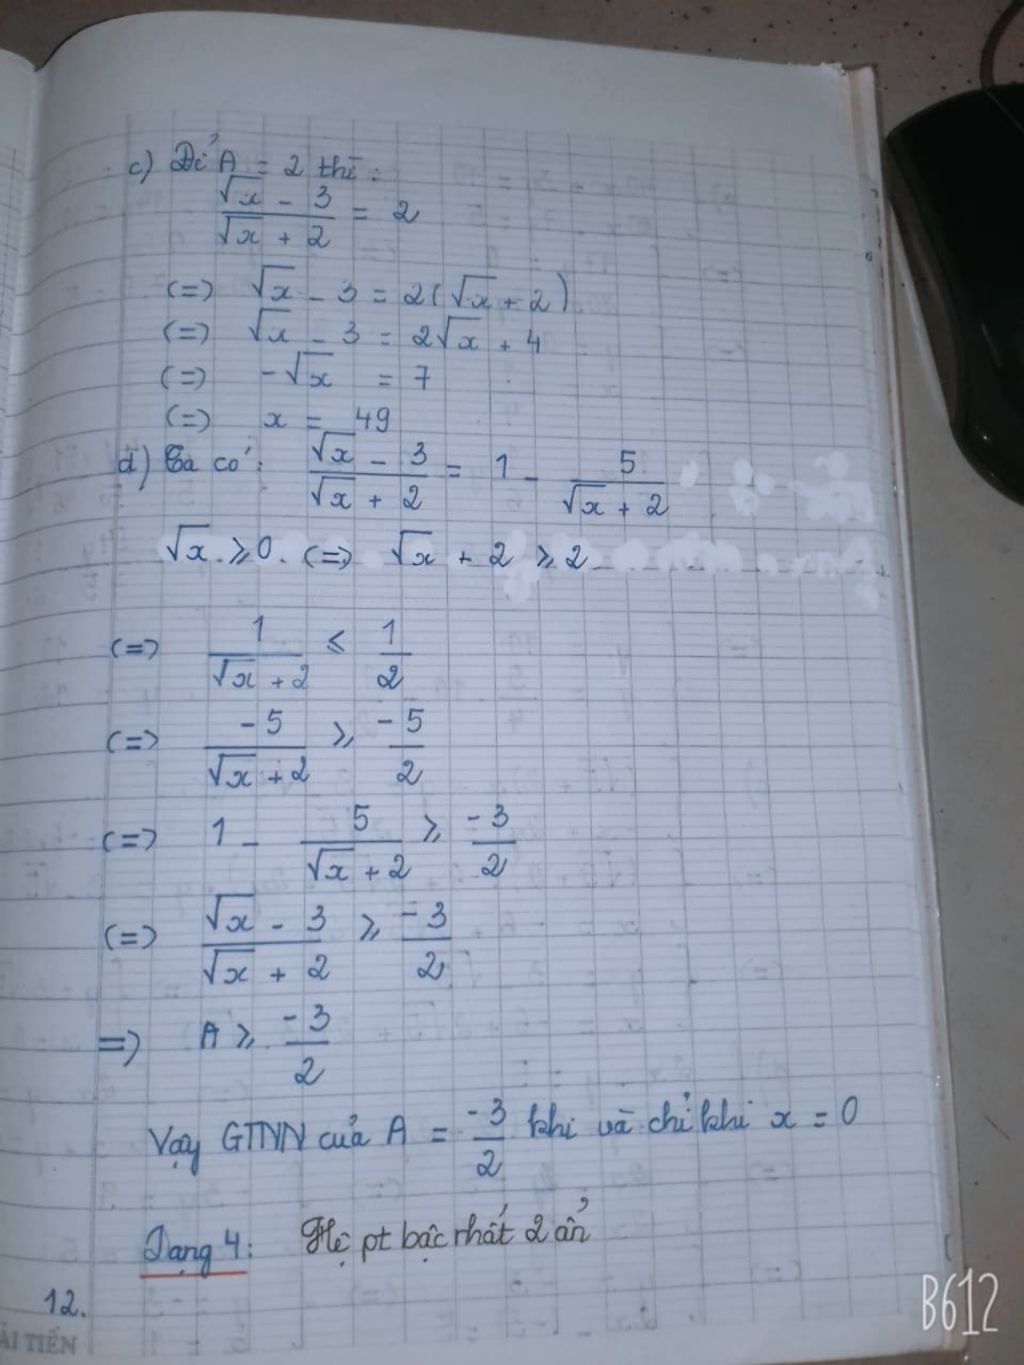 c) Để A = 2 thì :
(√x - 3)/(√x + 2) = 2
(=) √x - 3 = 2(√x + 2)
(=) √x - 3 = 2√x + 4
(=) -√x = 7
(=) x = 49
d) Ta có : (√x - 3)/(√x + 2) = 1 - 5/(√x + 2)
√x ⩾ 0. (=) √x + 2 ⩾ 2
(=) 1/(√x + 2) ⩽ 1/2
(=) -5/(√x + 2) ⩾ -5/2
(=) 1 - 5/(√x + 2) ⩾ -3/2
(=) (√x - 3)/(√x + 2) ⩾ -3/2
=) A ⩾ -3/2
Vậy GTNN của A = -3/2 khi và chỉ khi x = 0
Dạng 4: Hệ pt bậc nhất 2 ẩn
12.
ẢI TIẾN
B612